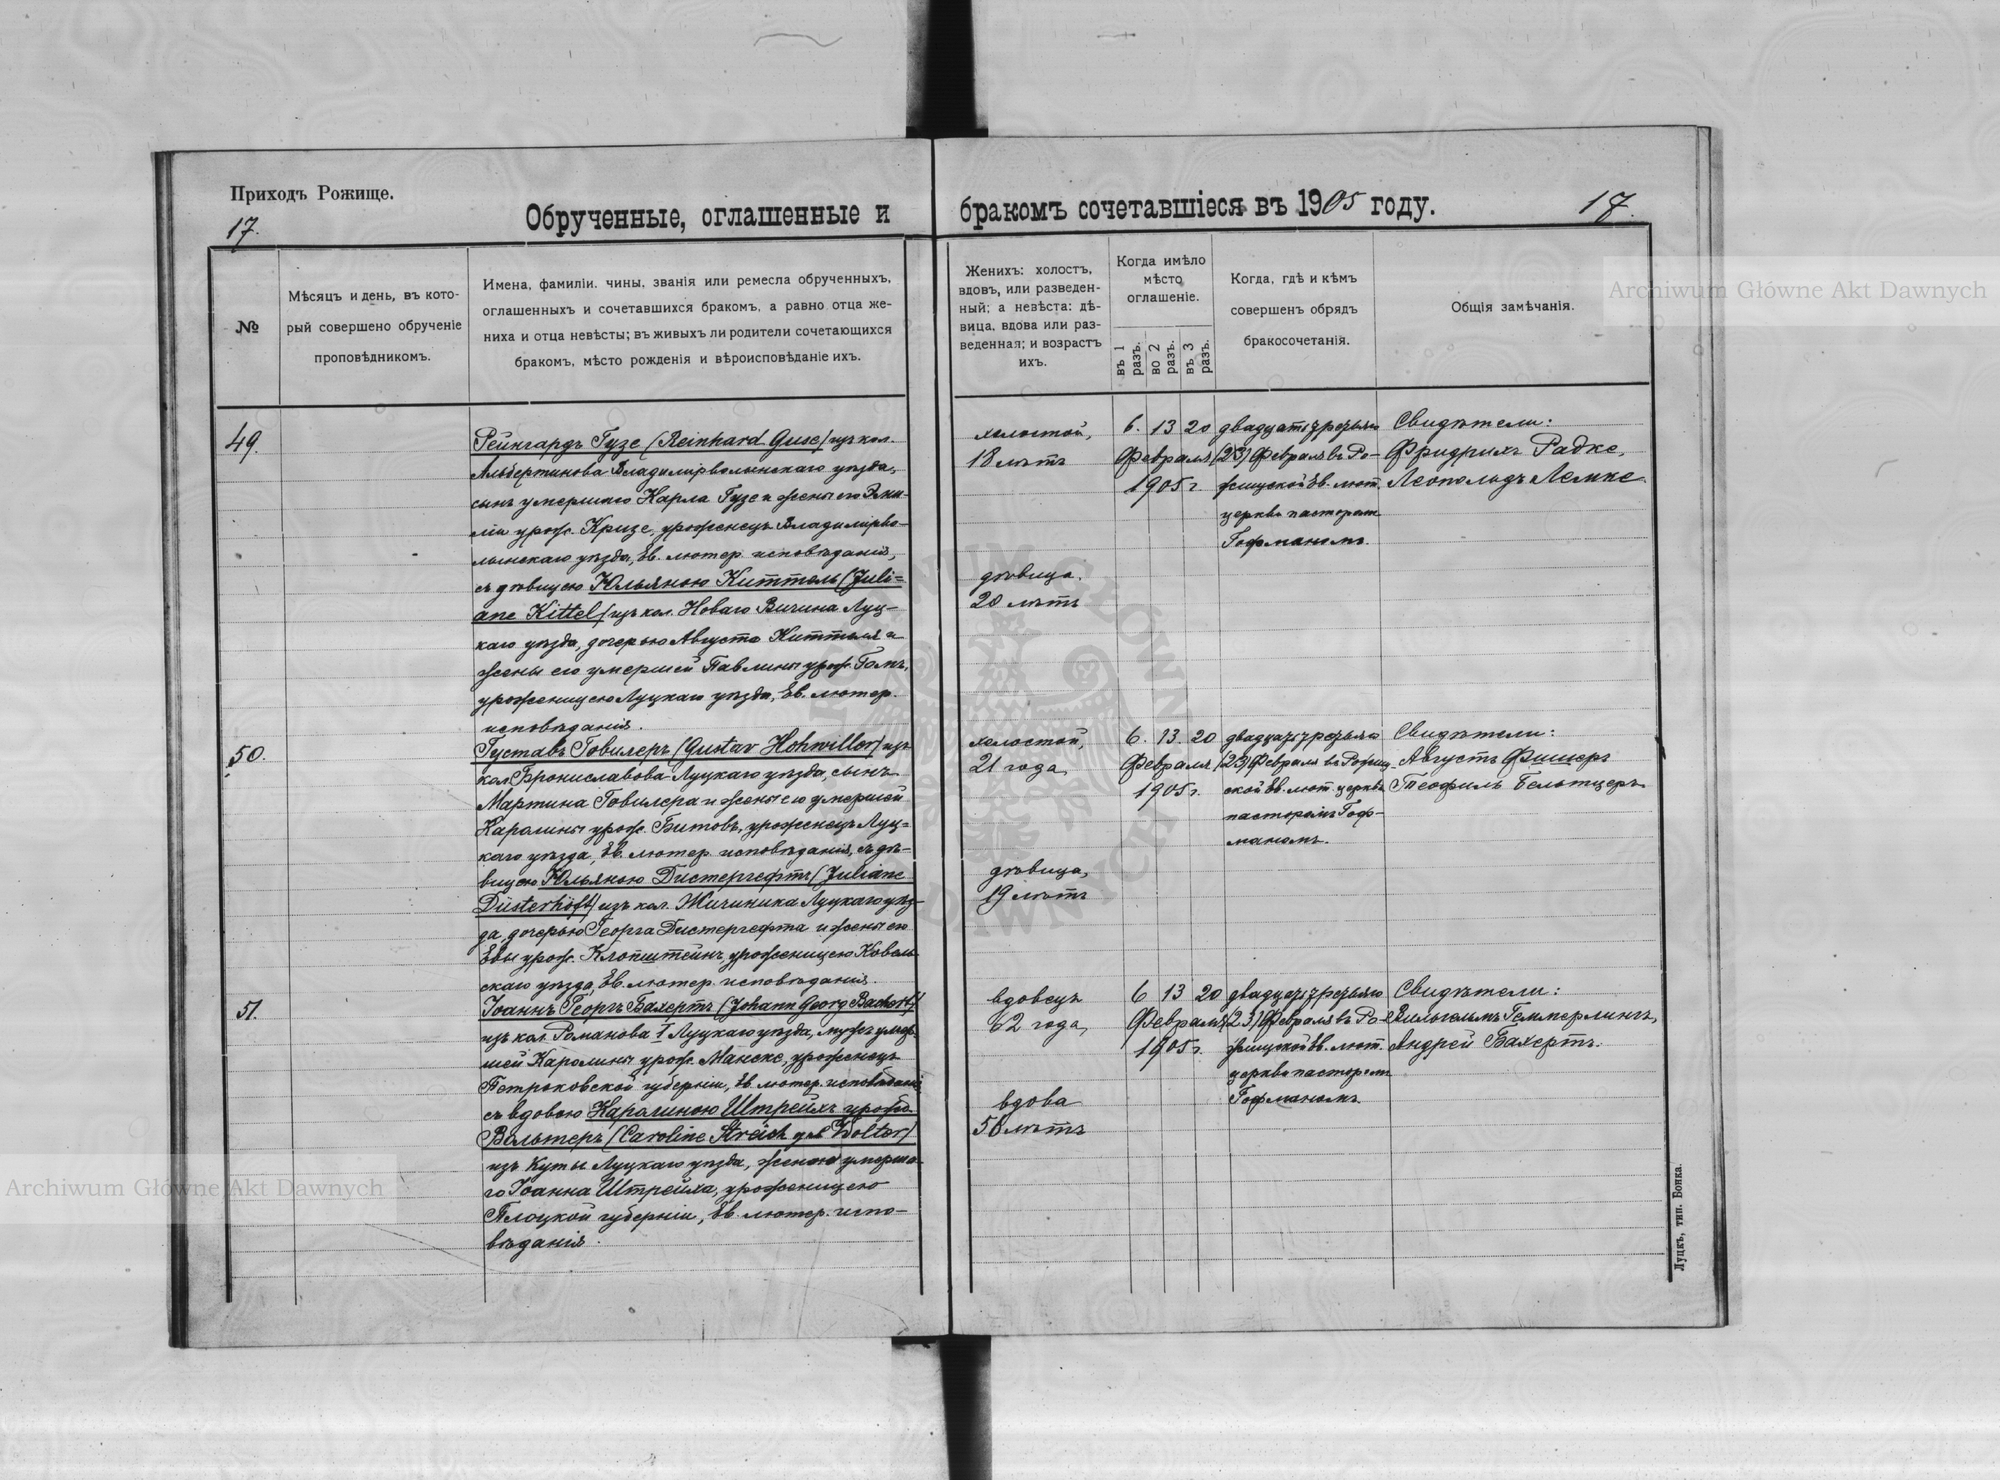 Приходъ Рожище.
17.
Обрученные, оглашенные и
бракомъ сочетавшіеся въ 1905 году.
17.
№
Мѣсяцъ и день, въ кото-
рый совершено обрученіе
проповѣдникомъ.
Имена, фамиліи, чины, званія или ремесла обрученныхъ,
оглашенныхъ и сочетавшихся бракомъ, а равно отца же-
ниха и отца невѣсты; въ живыхъ ли родители сочетающихся
бракомъ, мѣсто рожденія и вѣроисповѣданіе ихъ.
Женихъ: холостъ,
вдовъ, или разведен-
ный; а невѣста: дѣ-
вица, вдова или раз-
веденная; и возрастъ
ихъ.
Когда имѣло
мѣсто
оглашеніе.
въ 1 разъ.
во 2 разъ.
въ 3 разъ.
Когда, гдѣ и кѣмъ
совершенъ обрядъ
бракосочетанія.
Общія замѣчанія.
49.
Рейнгардъ Гузе (Reinhard Guse) изъ кол.
Альбертинова Владимірволынскаго уѣзда,
сынъ умершаго Карла Гузе и жены его Эми-
ліи урож. Кризе, уроженецъ Владимірво-
лынскаго уѣзда, Ев. лютер. исповѣданія,
съ дѣвицею Юльяною Киттель (Juli=
ane Kittel) изъ кол. Новаго Вичина Луц-
каго уѣзда, дочерью Августа Киттеля и
жены его умершей Павлины урож. Гомъ,
уроженицею Луцкаго уѣзда, Ев. лютер.
исповѣданія.
холостой,
18 лѣтъ
дѣвица.
20 лѣтъ
6. 13 20
Февраля
1905 г.
двадцать третьяго
(23) Февраля въ Ро-
жищской Ев. лют.
церкви пасторомъ
Гофманомъ.
Свидѣтели:
Фридрихъ Радке,
Леопольдъ Лемке.
50.
Густавъ Говилеръ (Gustav Hohwiller) изъ
кол. Брониславова Луцкаго уѣзда, сынъ
Мартина Говилера и жены его умершей
Каролины урож. Битовъ, уроженецъ Луц=
каго уѣзда, Ев. лютер. исповѣданія, съ дѣ-
вицею Юльяною Дистергефтъ (Juliane
Düsterhöft) изъ кол. Жичиника Луцкаго уѣз-
да, дочерью Георга Дистергефта и жены его
Евы урож. Клопштейнъ, уроженицею Ковель-
скаго уѣзда, Ев. лютер. исповѣданія.
холостой,
21 года,
дѣвица,
19 лѣтъ
6. 13. 20
Февраля
1905 г.
двадцать третьяго
(23) Февраля въ Рожищ-
ской Ев. лют. церкви
пасторомъ Гоф-
маномъ.
Свидѣтели:
Августъ Фишеръ
Теофиль Бельтцеръ
51.
Іоаннъ Георгъ Бахертъ (Johann Georg Bachert)
изъ кол. Романова I Луцкаго уѣзда, мужъ умер-
шей Каролины урож. Манске, уроженецъ
Петроковской губерніи, Ев. лютер. исповѣданія
съ вдовою Каролиною Штрейхъ урожд.
Вольтеръ (Caroline Streich geb Wolter)
изъ Куты Луцкаго уѣзда, женою умерша-
го Іоанна Штрейха, уроженицею
Плоцкой губерніи, Ев. лютер. испо-
вѣданія.
вдовецъ
62 года,
вдова
50 лѣтъ
6 13 20
Февраля
1905 г.
двадцать третьяго
(23) Февраля въ Ро-
жищской Ев. лют.
церкви пасторомъ
Гофманомъ.
Свидѣтели:
Вильгельмъ Геммерлингъ,
Андрей Бахертъ.
Луцкъ, тип. Бонка.
Archiwum Główne Akt Dawnych
Archiwum Główne Akt Dawnych